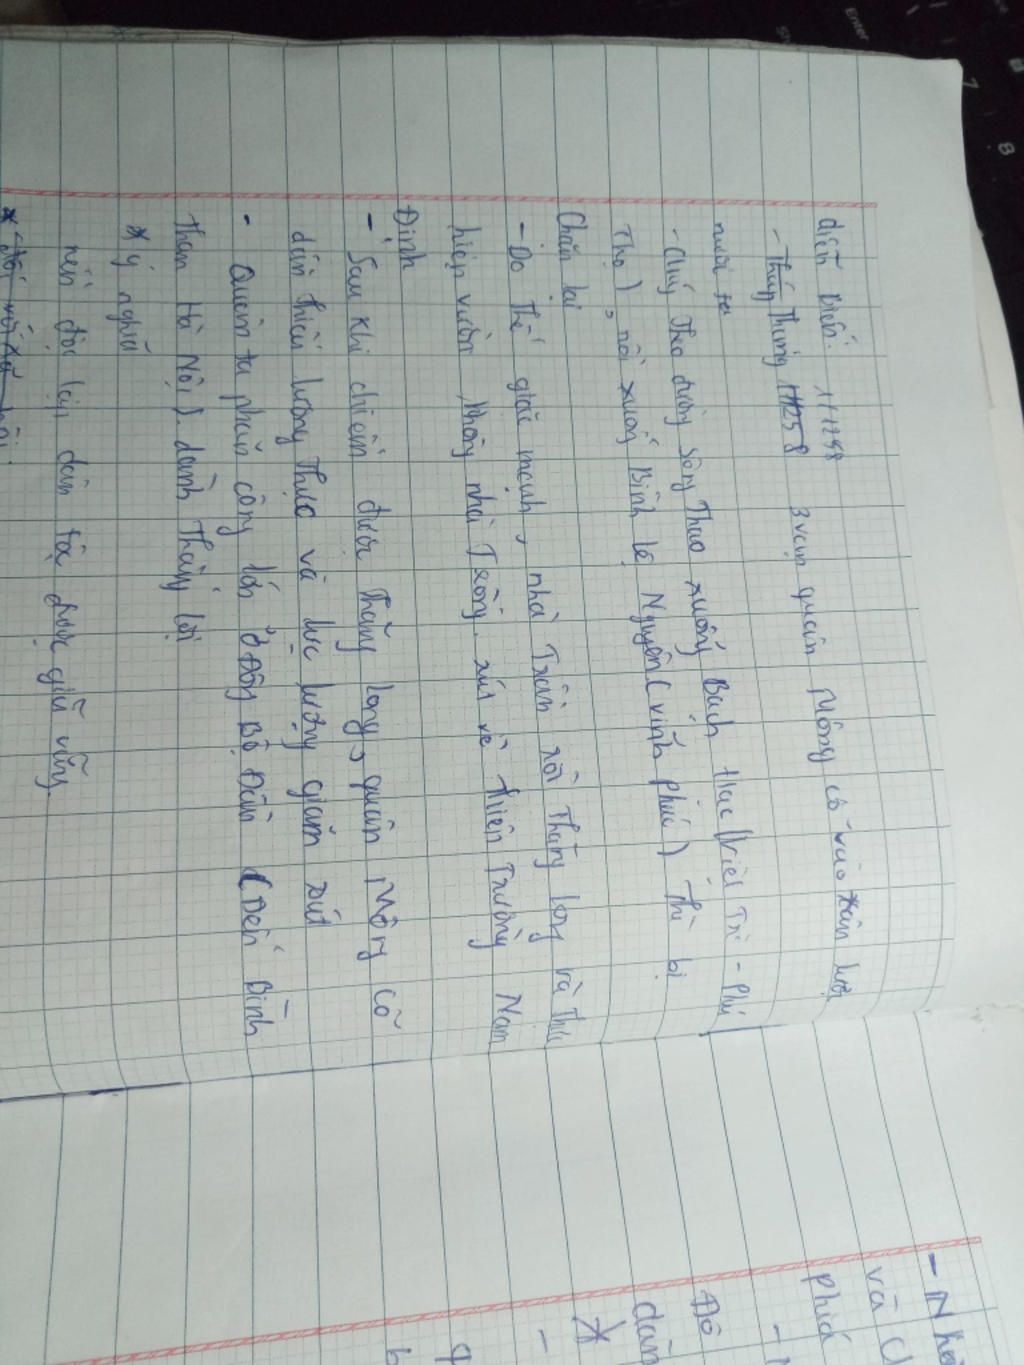 diễn biến: 1/1258
- Tháng 1/1258 3 vạn quân Mông cổ vào xâm lược
nước ta
- Chúng theo đường sông Thao xuống Bạch Hạc (Việt Trì - Phú
Thọ), rồi xuống Bình lệ Nguyên (vĩnh phúc) Thì bị
Chặn lại
- Do Thế giặc mạnh, nhà Trần rời Thăng long và Thực
hiện vườn không nhà Trống. rút về Thiên Trường Nam
Định
- Sau khi chiếm được Thăng long, quân Mông Cổ
dần thiếu lương Thực và lực lượng giảm sút
- Quân ta phản công lớn ở Đông Bộ Đầu (Bến Đình
Than Hà Nội). dành Thắng lợi
* ý nghĩa
nền độc lập dân tộc được giữ vững.
- Nhà
và
phía
Đô
dân
*
-